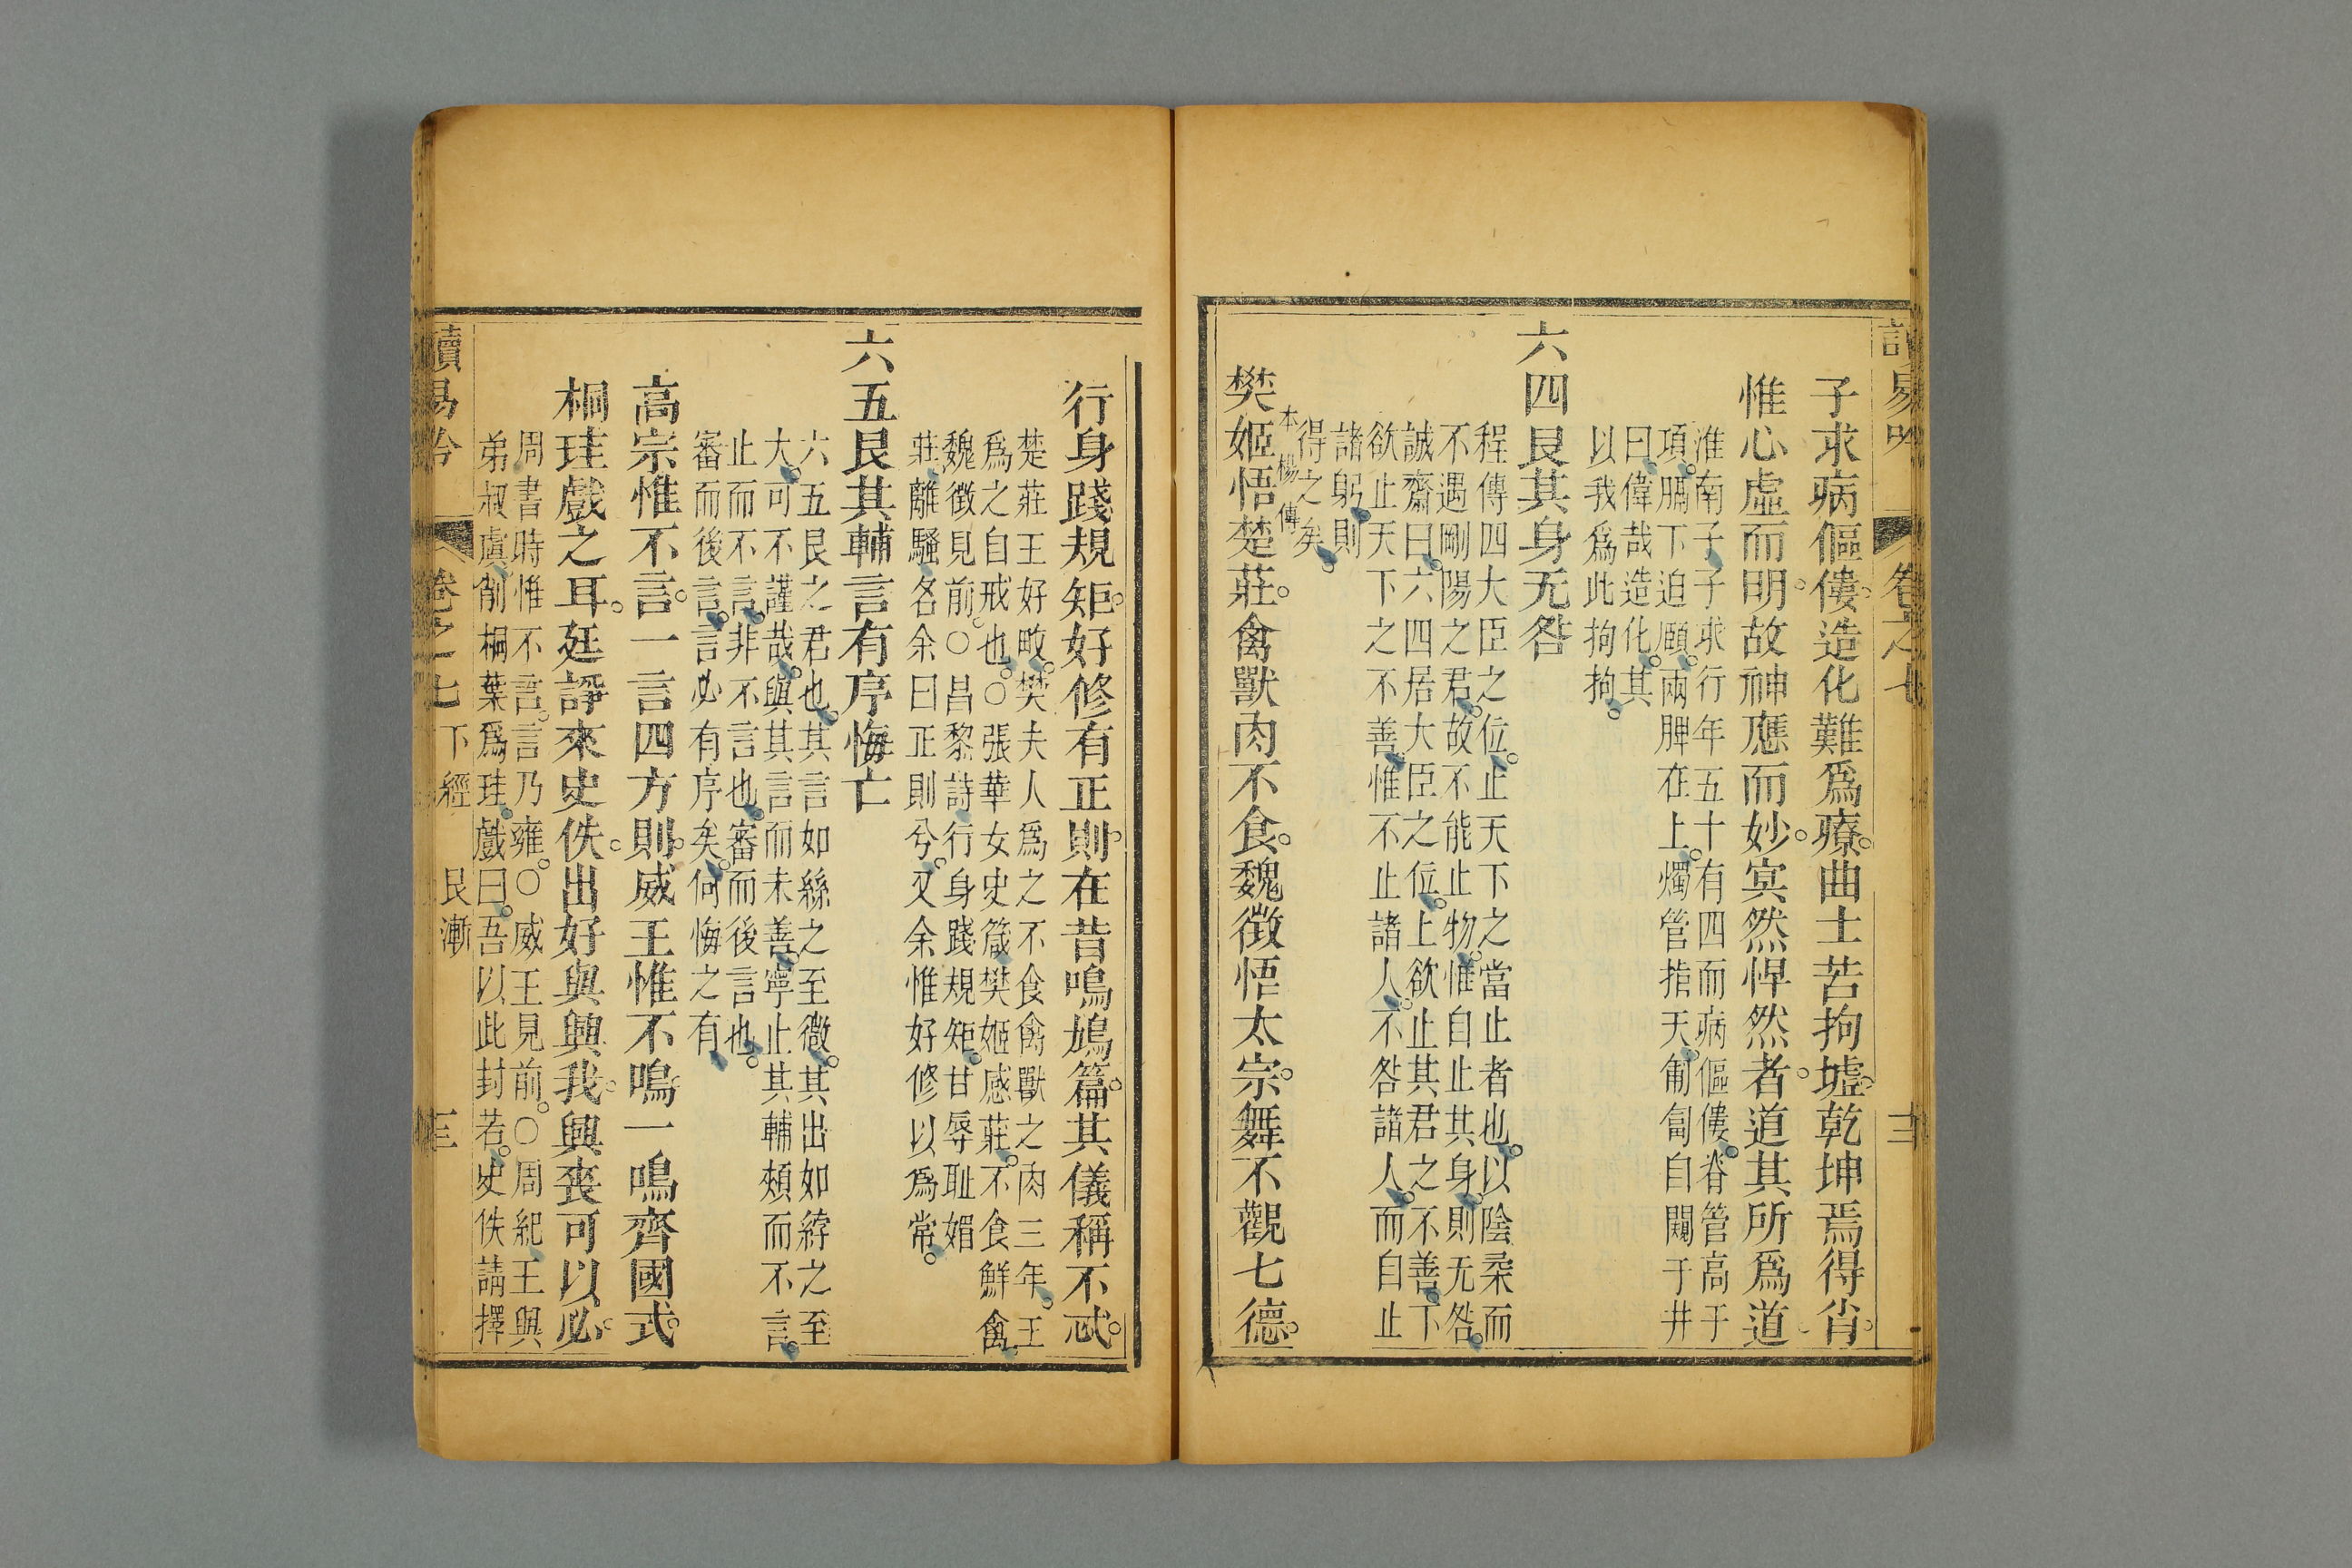 子求病傴僂造化難爲療曲士苦拘墟乾坤焉得肖
惟心虛而明故神應而妙寞然悍然者道其所爲道
淮南子子求行年五十有四而病傴僂脊管高于
項䐃下迫頤兩脾在上燭管指天匍匐自闚于井
曰偉哉造化其
以我爲此拘拘
六四艮其身无咎
程傳四大臣之位止天下之當止者也以陰柔而
不遇剛陽之君故不能止物惟自止其身則无咎
誠齋曰六四居大臣之位上欲止其君之不善下
欲止天下之不善惟不止諸人不咎諸人而自止
諸躬則
得之矣
本楊傳
樊姬悟楚莊禽獸肉不食魏徵悟太宗舞不觀七德
行身踐規矩好修有正則在昔鳴鳩篇其儀稱不忒
楚莊王好畋樊夫人爲之不食禽獸之肉三年王
爲之自戒也○張華女史箴樊姬感莊不食鮮禽
魏徵見前○昌黎詩行身踐規矩甘辱恥媚
莊離騷名余曰正則兮又余惟好修以爲常
六五艮其輔言有序悔亡
六五艮之君也其言如絲之至微其出如綍之至
大可不謹哉與其言而未善寧止其輔頰而不言
止而不言非不言也審而後言也
審而後言言必有序矣何悔之有
高宗惟不言一言四方則威王惟不鳴一鳴齊國式
桐珪戲之耳廷諍來史佚出好與興我興喪可以必
周書時惟不言言乃雍○威王見前○周紀王與
弟叔虞削桐葉爲珪戲曰吾以此封若史佚請擇
讀易吟 卷之七 下經 艮漸